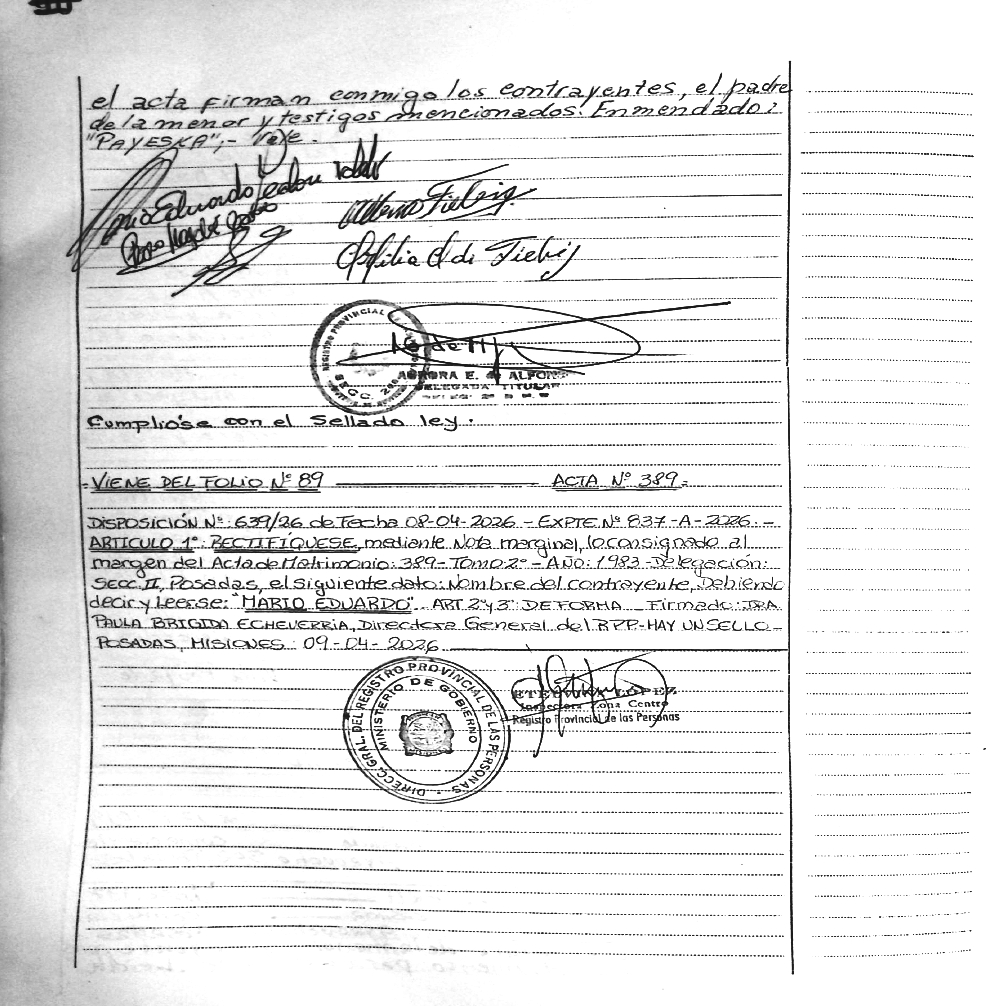 el acta firman conmigo los contrayentes, el padre
de la menor y testigos mencionados. Enmendado:
"PAYESKA";- Vale.
Mario Eduardo
Tiebig
de Tiebig
REGISTRO PROVINCIAL
SECC. 2da
AURORA E. de ALFONS
DELEGADA TITULAR
Cumplióse con el Sellado ley.
- VIENE DEL FOLIO Nº 89 ACTA Nº 389 -
DISPOSICIÓN Nº: 639/26 de Fecha 08-04-2026 - EXPTE Nº 837-A-2026. -
ARTICULO 1º: RECTIFÍQUESE, mediante Nota marginal, lo consignado al
margen del Acta de Matrimonio: 389-Tomo 2º - AÑO: 1983-Delegación:
Secc. II, Posadas, el siguiente dato: Nombre del contrayente, Debiendo
decir y Leerse: "MARIO EDUARDO". ART 2º y 3º DE FORMA _ Firmado: DRA.
PAULA BRIGIDA ECHEVERRIA, Directora General del RPP-HAY UN SELLO-
POSADAS, MISIONES: 09-04-2026
DIRECC. GRAL. DEL REGISTRO PROVINCIAL DE LAS PERSONAS
MINISTERIO DE GOBIERNO
LOPEZ
Inspectora Zona Centro
Registro Provincial de las Personas